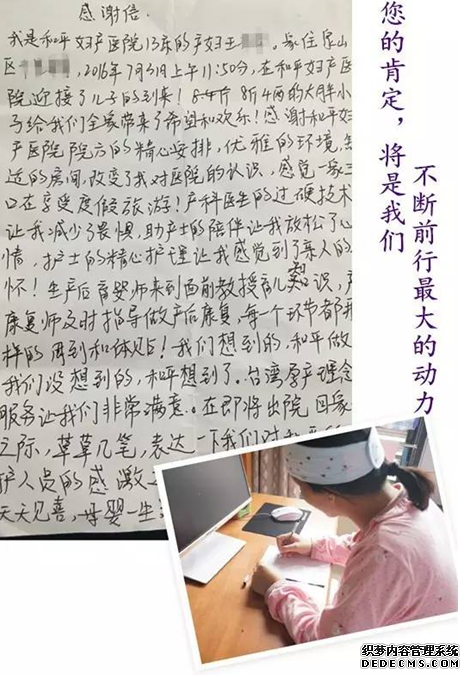 感谢信.
我是和平妇产医院13床的产妇王 。家住泉山
区 ,2016年7月31日上午11:50分,在和平妇产医
院迎接了儿子的到来! 8斤4两的大胖小
子给我们全家带来了希望和欢乐!感谢和平妇
产医院院方的精心安排,优雅的环境
适的房间,改变了我对医院的认识,感觉一家三
口在享受度假旅游!产科医生的过硬技术
让我减少了畏惧,助产士的陪伴让我放松了心
情,护士的精心护理让我感觉到了亲人的
怀!生产后育婴师来到面前教授育儿知识,产
康复师及时指导做产后康复,每一个环节都
样的周到和体贴!我们想到的,和平做
我们没想到的,和平想到了。台湾孕产理念
服务让我们非常满意。在即将出院回家
之际,草草几笔,表达一下我们对
护人员的感激
天天见喜,母婴一生
您的肯定,将是我们
不断前行最大的动力
织梦内容管理系统
DEDECMS.COM